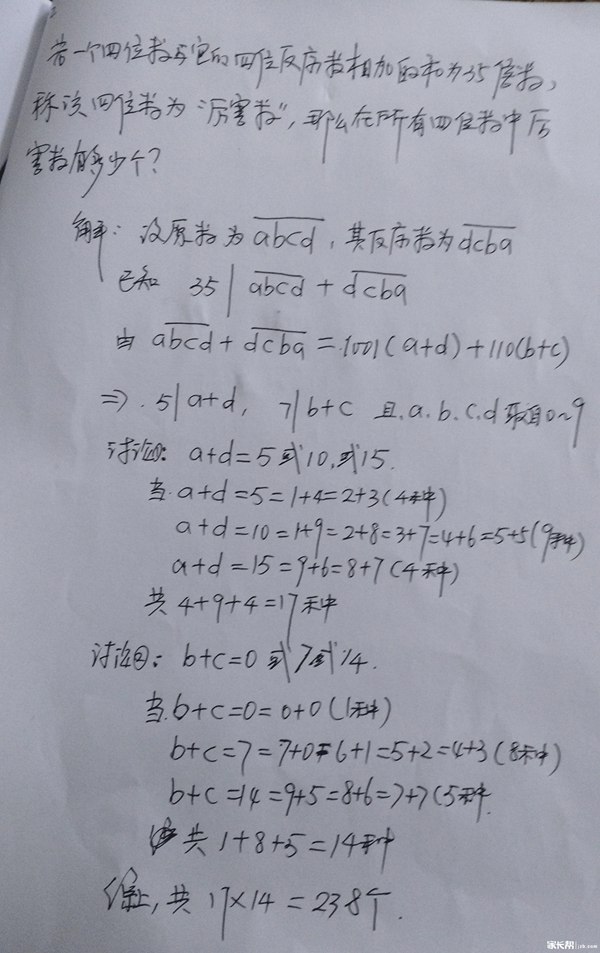 若一个四位数与它的四位反序数相加的和为35倍数,
称该四位数为“厉害数”,那么在所有四位数中厉
害数有多少个?
解: 设原数为 abcd, 其反序数为 dcba
已知 35 | abcd + dcba
由 abcd + dcba = 1001(a+d) + 110(b+c)
⇒ 5|a+d, 7|b+c 且.a.b.c.d取自0~9
讨论①: a+d=5或10,或15.
当.a+d=5=1+4=2+3(4种)
a+d=10=1+9=2+8=3+7=4+6=5+5(9种)
a+d=15=9+6=8+7(4种)
共 4+9+4=17种
讨论②: b+c=0 或7或14.
当.b+c=0=0+0(1种)
b+c=7=7+0=6+1=5+2=4+3(8种)
b+c=14=9+5=8+6=7+7(5种.
共 1+8+5=14种
综上, 共 17×14=238个.
家长帮 jzb.com